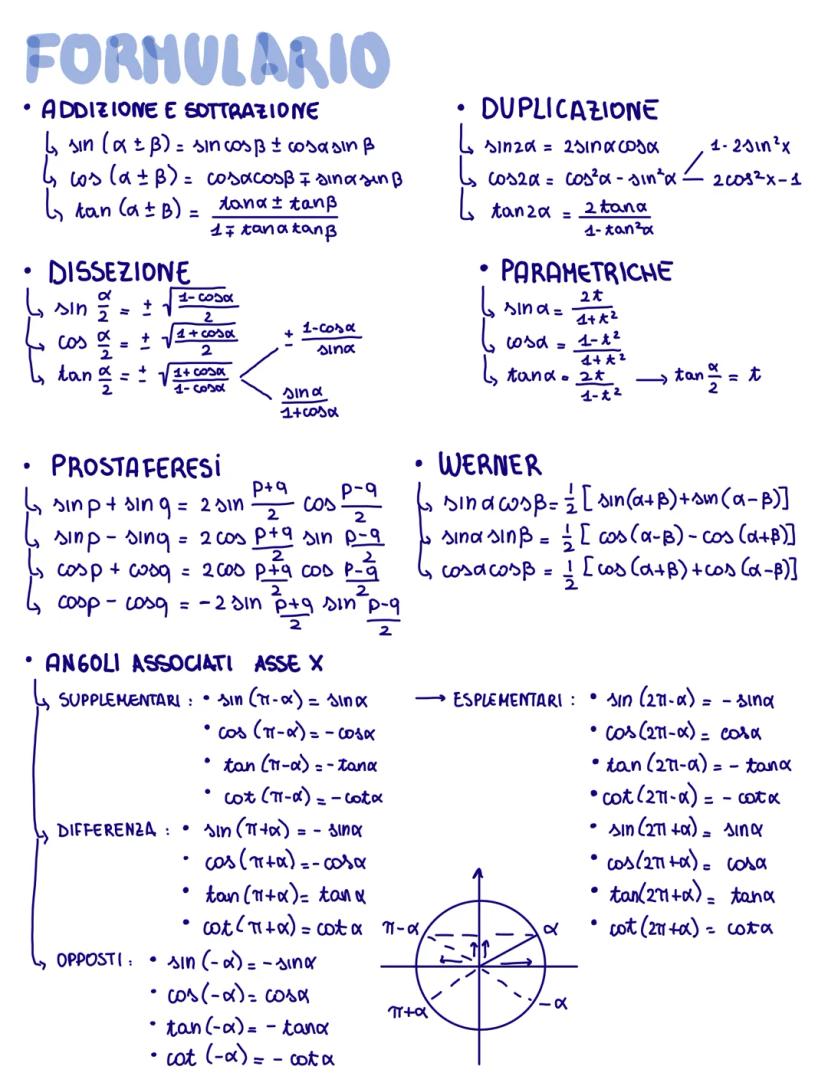 FORMULARIO
• ADDIZIONE E SOTTRAZIONE
↳ sin (α ± β) = sin cos β ± cos α sin β
↳ cos (α ± β) = cos α cos β ∓ sin α sin β
↳ tan (α ± β) = (tan α ± tan β) / (1 ∓ tan α tan β)
• DUPLICAZIONE
↳ sin2α = 2sin α cos α
↳ cos2α = cos²α - sin²α
1 - 2sin²x
2cos²x - 1
↳ tan2α = 2tanα / (1 - tan²α)
• DISSEZIONE
↳ sin α/2 = ± √((1 - cosα)/2)
↳ cos α/2 = ± √((1 + cosα)/2)
↳ tan α/2 = ± √((1 + cosα)/(1 - cosα))
± (1 - cosα)/sinα
sinα/(1 + cosα)
• PARAMETRICHE
↳ sinα = 2t/(1 + t²)
↳ cosα = (1 - t²)/(1 + t²)
↳ tanα = 2t/(1 - t²) → tan α/2 = t
• PROSTAFERESI
↳ sin p + sin q = 2 sin (p+q)/2 cos (p-q)/2
↳ sin p - sin q = 2 cos (p+q)/2 sin (p-q)/2
↳ cos p + cos q = 2 cos (p+q)/2 cos (p-q)/2
↳ cos p - cos q = -2 sin (p+q)/2 sin (p-q)/2
• WERNER
↳ sin α cos β = 1/2 [ sin(α+β) + sin(α-β)]
↳ sin α sin β = 1/2 [ cos(α-β) - cos(α+β)]
↳ cos α cos β = 1/2 [cos(α+β) + cos(α-β)]
• ANGOLI ASSOCIATI ASSE X
↳ SUPPLEMENTARI : • sin (π-α) = sinα
• cos (π-α) = -cosα
• tan (π-α) = -tanα
• cot (π-α) = -cotα
↳ DIFFERENZA : • sin (π+α) = - sinα
• cos (π+α) = -cosα
• tan (π+α) = tan α
• cot (π+α) = cot α
↳ OPPOSTI : • sin (-α) = -sinα
• cos (-α) = cosα
• tan (-α) = - tanα
• cot (-α) = - cotα
→ ESPLEMENTARI : • sin (2π-α) = - sinα
• cos (2π-α) = cosα
• tan (2π-α) = - tanα
• cot (2π-α) = - cotα
• sin (2π+α) = sinα
• cos (2π+α) = cosα
• tan (2π+α) = tanα
• cot (2π+α) = cotα
π-α
α
π+α
-α